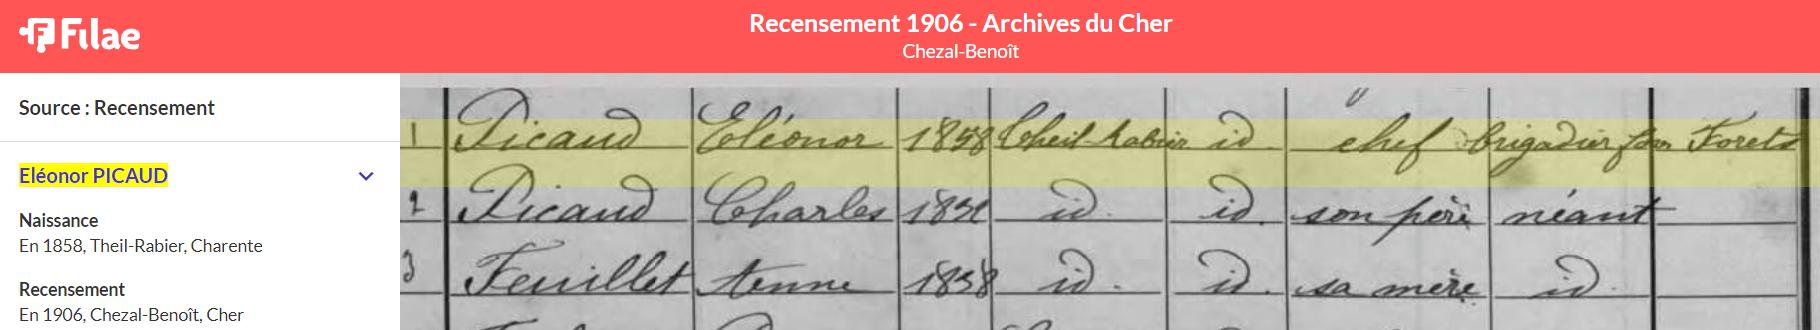 Filae
Recensement 1906 - Archives du Cher
Chezal-Benoît
Source : Recensement
Eléonor PICAUD
Naissance
En 1858, Theil-Rabier, Charente
Recensement
En 1906, Chezal-Benoît, Cher
1 Picaud Eléonor 1858 Theil-Rabier id. chef brigadier Forets
2 Picaud Charles id. id. son père néant
3 Feuillet 1838 id. id. sa mère id.